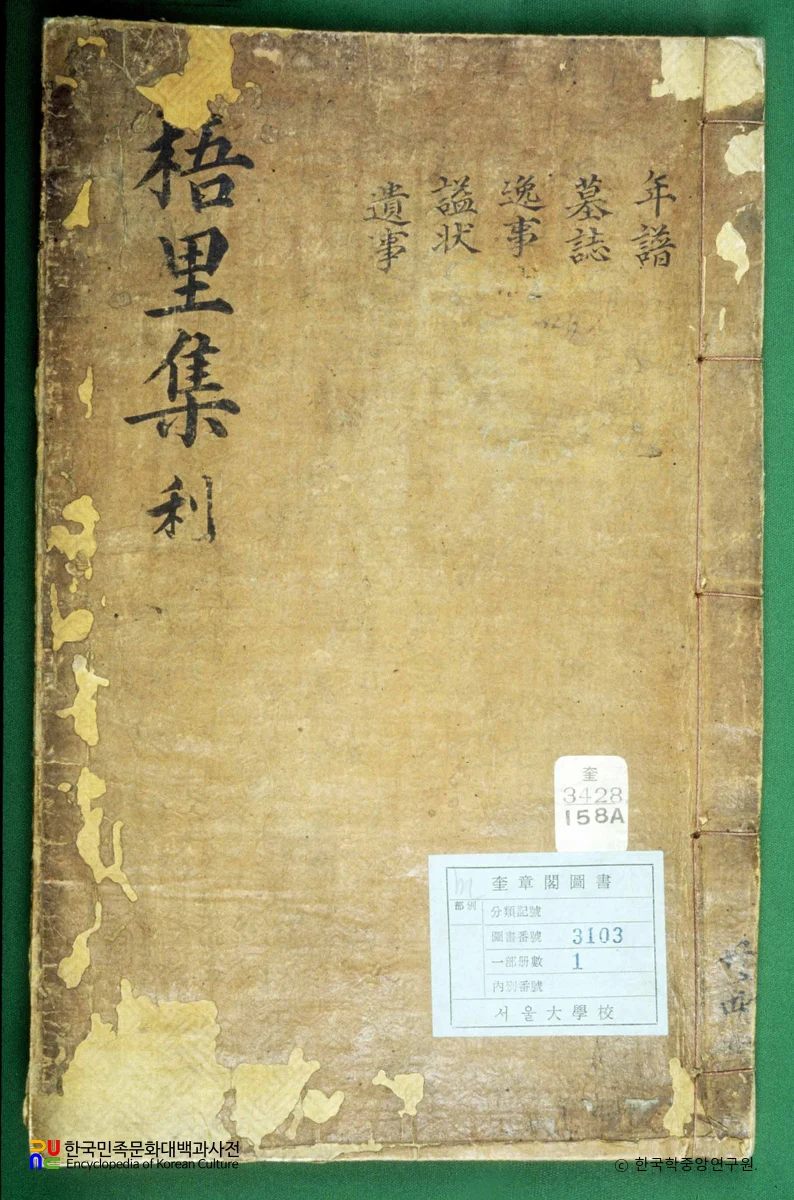 梧里集 利
年譜
墓誌
逸事
諡狀
遺事
奎
3428
158A
奎章閣圖書
部別
分類記號
圖書番號 3103
一部册數 1
內別番號
서울大學校
한국민족문화대백과사전
Encyclopedia of Korean Culture
© 한국학중앙연구원.